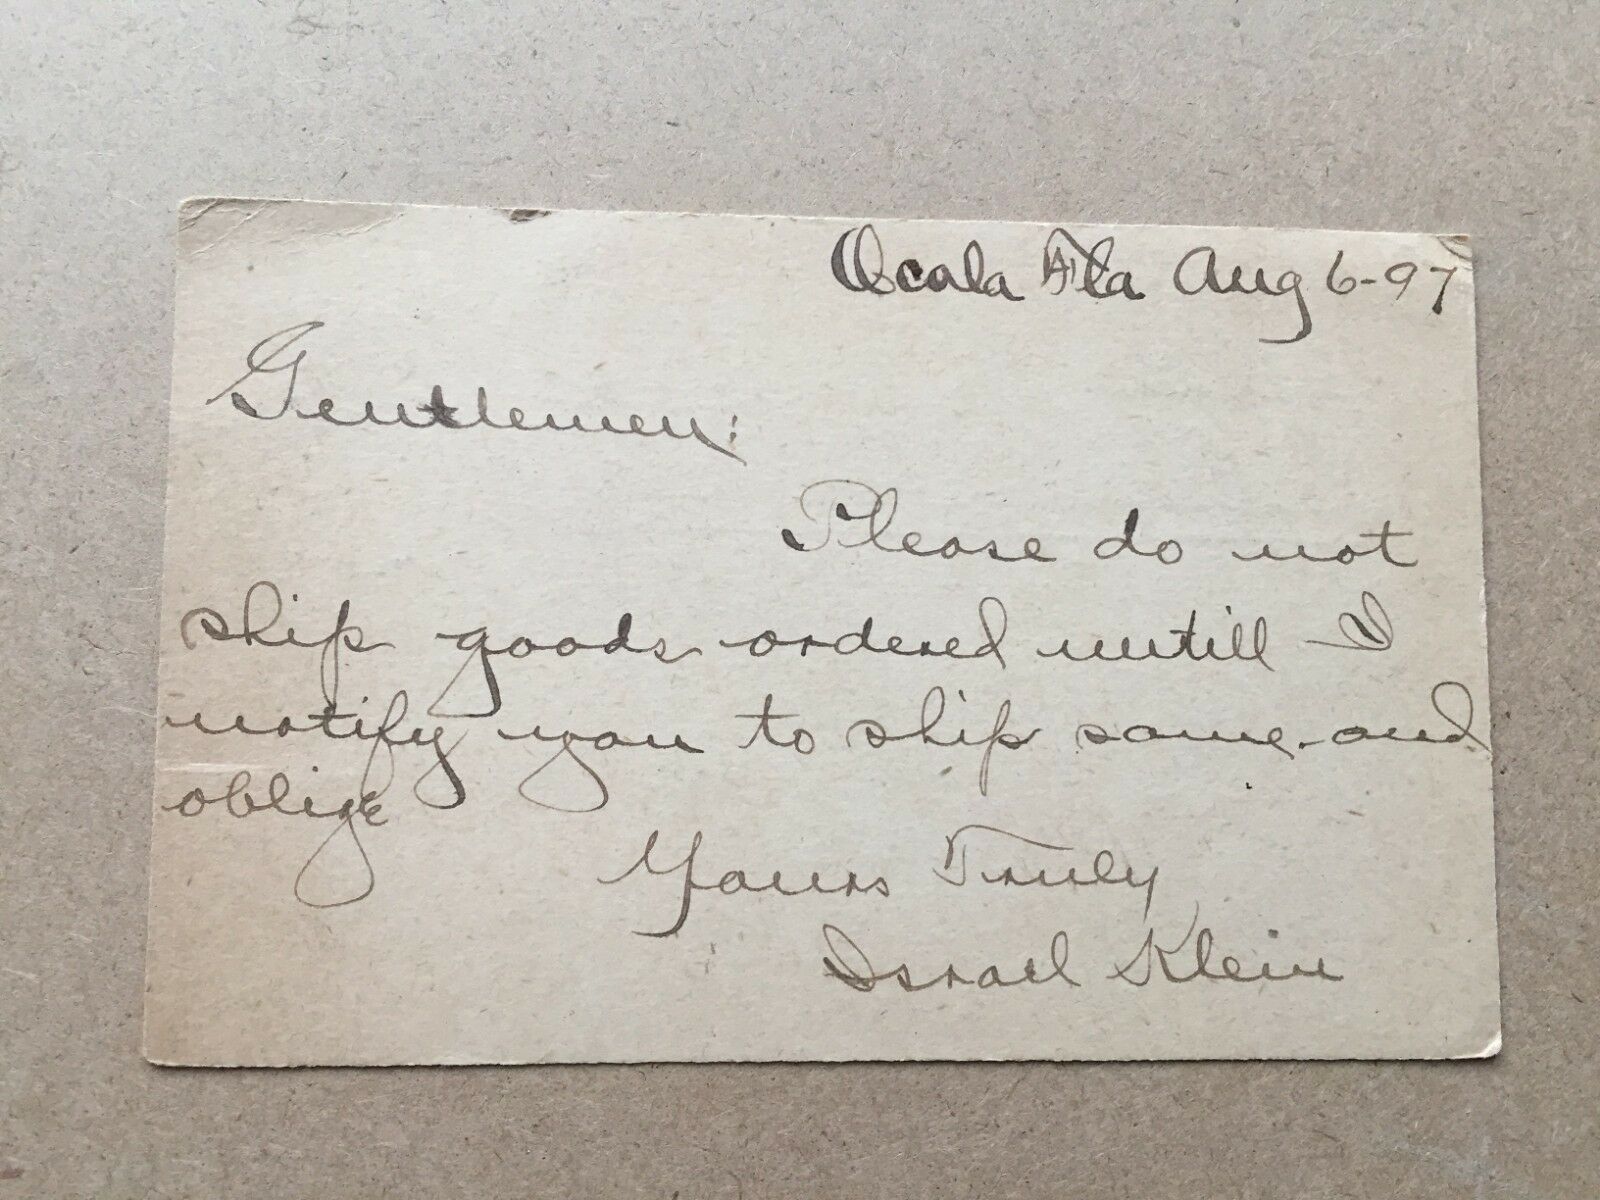 Ocala Fla Aug 6-97
Gentlemen:
Please do not
ship goods ordered untill I
notify you to ship same and
oblige
Yours Truly
Israel Klein